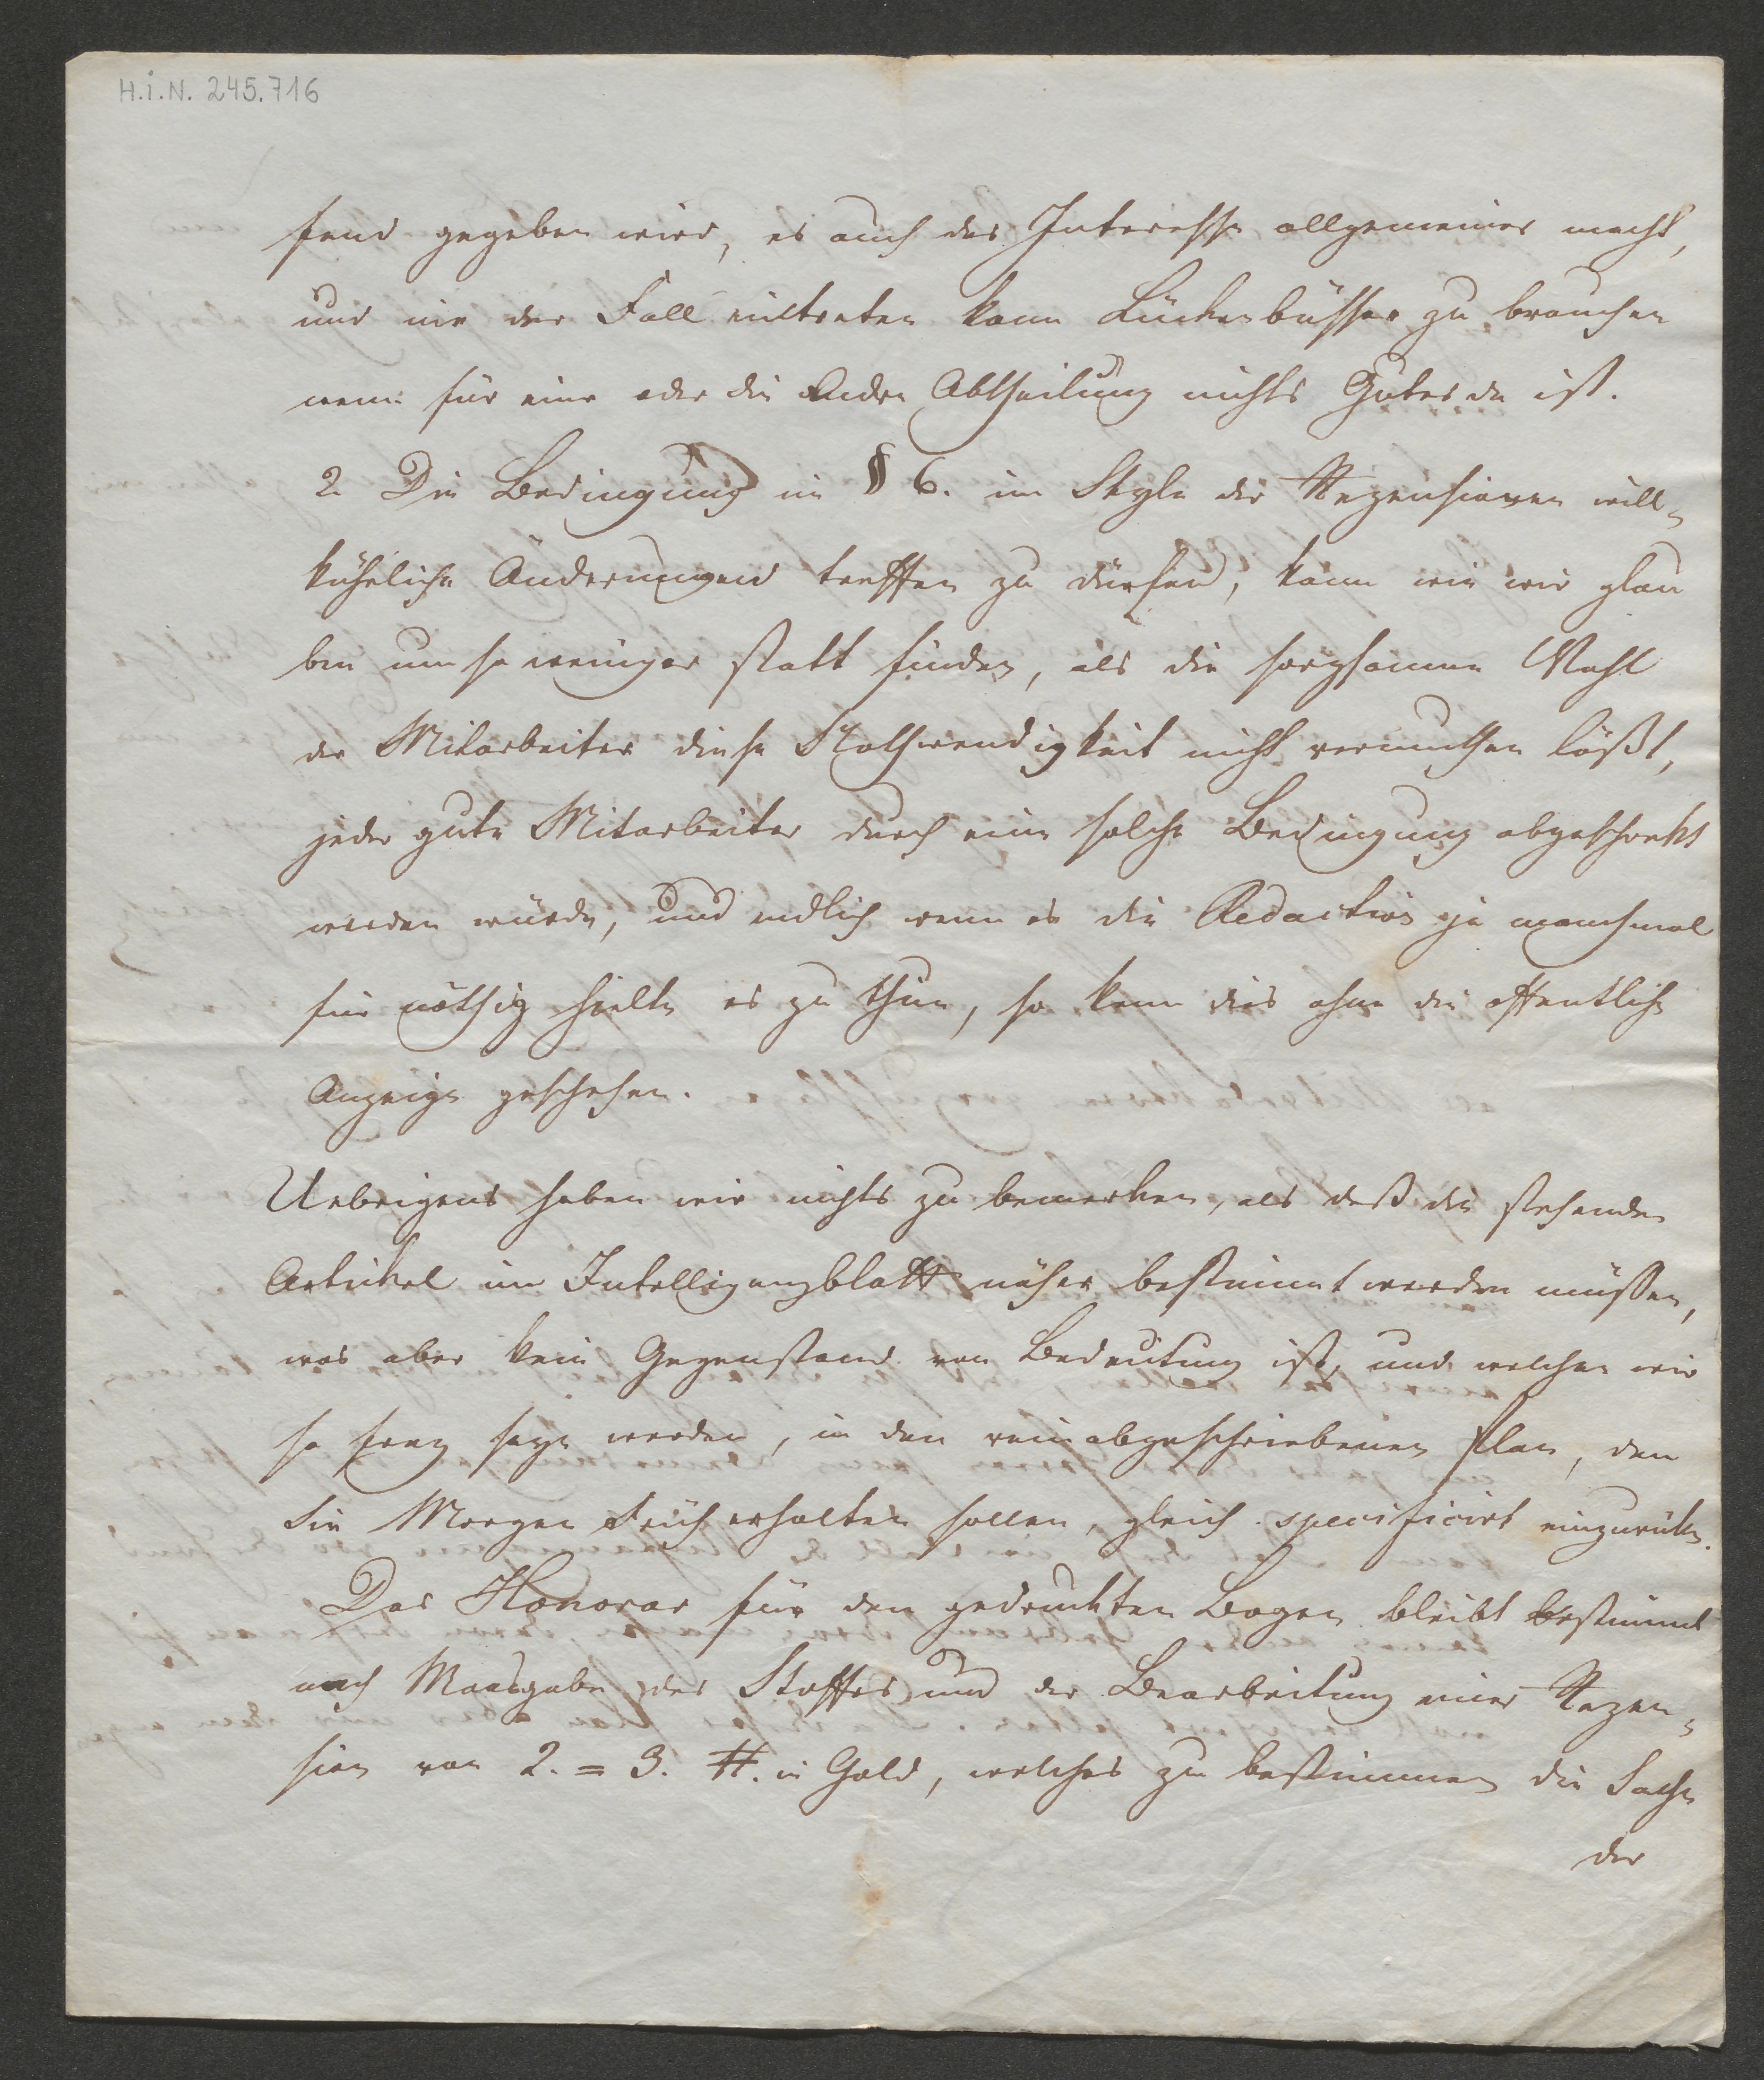 H.I.N. 245.716
fend gegeben wird, es auch das Interesse allgemeiner macht,
und nie der Fall eintreten kann Lückenbüsser zu brauchen
wenn für eine oder die Andre Abtheilung nichts Gutes da ist.
2. Die Bedingung in § 6. im Style der Rezensionen will=
kührliche Änderungen treffen zu dürfen, kann wie wir glau
ben um so weniger statt finden, als die sorgsamme Wahl
der Mitarbeiter diese Nothwendigkeit nicht vermuthen läßt,
jeder gute Mitarbeiter durch eine solche Bedingung abgeschrekt
werden würde, und endlich wenn es die Redaction je manchmal
für nöthig hielte es zu thun, so kann dies ohne die öffentliche
Anzeige geschehen.
Uebrigens haben wir nichts zu bemerken, als daß die stehenden
Artickel im Intelligenzblatt näher bestimmt werden müssen,
was aber kein Gegenstand von Bedeutung ist, und welchen wir
so frey seyn werden, in den rein abgeschriebenen Plan, den
Sie Morgen Früh erhalten sollen, gleich specificirt einzurüken.
Das Honorar für den gedruckten Bogen bleibt bestimmt
nach Maasgabe des Stoffes und der Bearbeitung einer Rezen=
sion von 2. = 3. #. in Gold, welches zu bestimmen die Sache
der